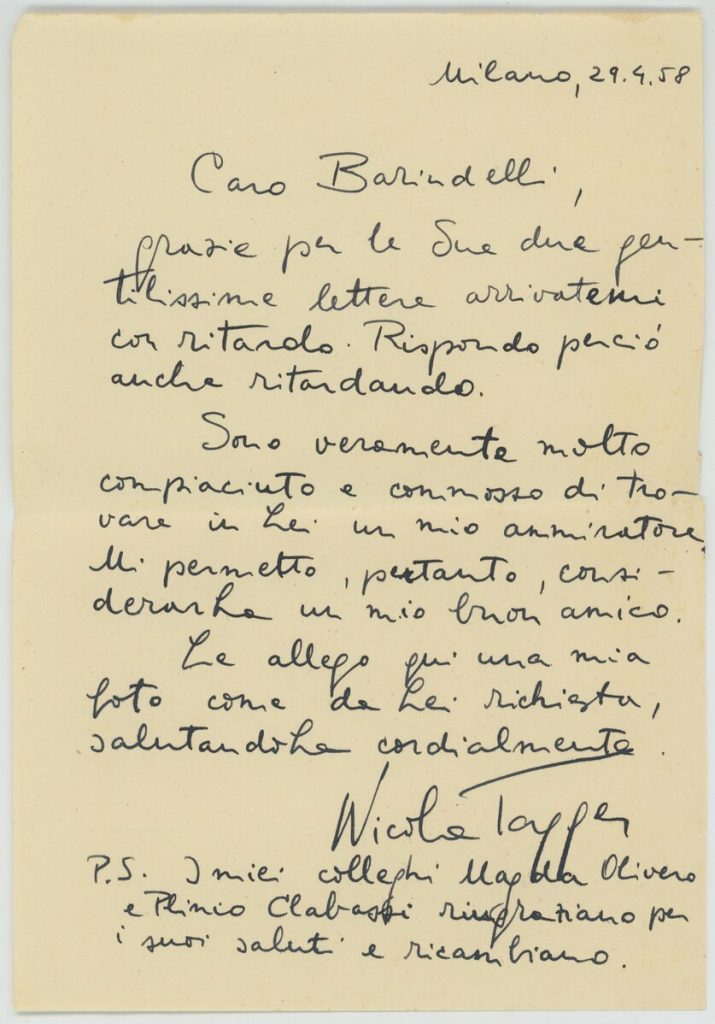 Milano, 29.4.58
Caro Barindelli,
grazie per le Sue due gen-
tilissime lettere arrivatemi
con ritardo. Rispondo perció
anche ritardando.
Sono veramente molto
compiaciuto e commosso di tro-
vare in Lei un mio ammiratore.
Mi permetto, pertanto, consi-
derarLa un mio buon amico.
Le allego qui una mia
foto come da Lei richiesta,
salutandoLa cordialmente.
Nicola Tagger
P.S. I miei colleghi Magda Olivero
e Plinio Clabassi ringraziano per
i suoi saluti e ricambiano.